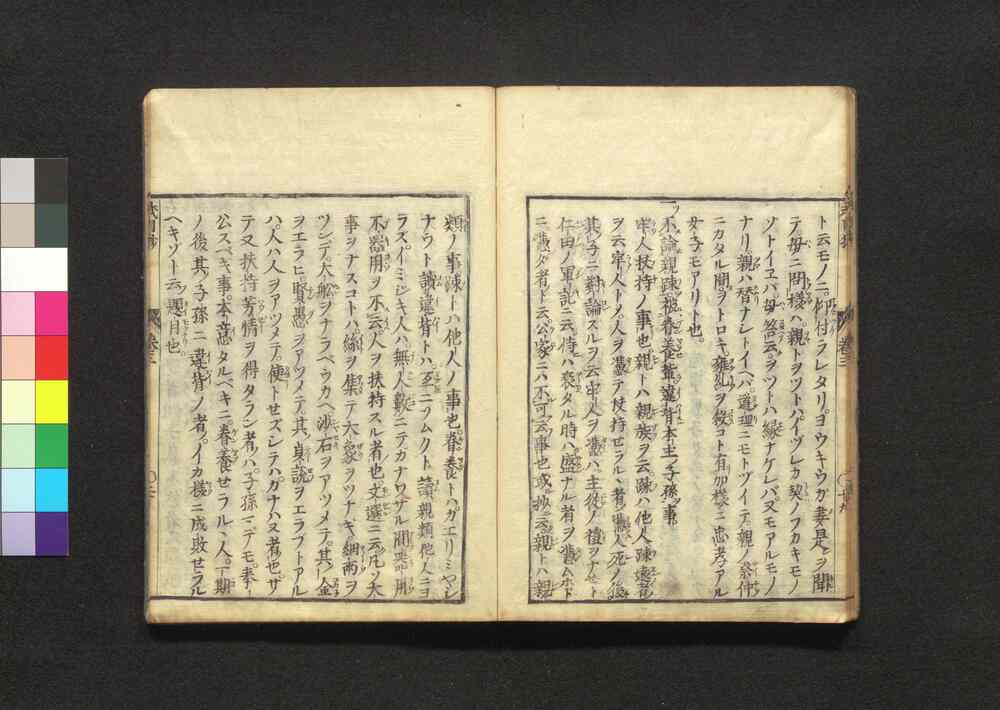 ト云モノニ仰付ラレタリヨウキウガ妻是ヲ聞
テ母ニ問様ハ親トヲツトハイヅレカ契ノフカキモノ
ゾトイエバ母答云ヲツトハ縁ナケレバ又モアルモノ
ナリ親ハ替ナシトイヘバ道理ニモトヅイテ親ノ祭仲
ニカタル聞ヲトロキ雍糺ヲ殺コト有加様ニ忠孝アル
女子モアリト也
一不論親疎被眷養輩違背本主子孫事
牢人扶持ノ事也親トハ親族ヲ云疎ハ他人疎遠
ヲ云牢人トノ人ヲ憑テ扶持セラルヽ者憑人死ノ後
其子ニ對論スルヲ云牢人ヲ憑ハ主従ノ禮ヲナサ
仁田ノ軍記ニ云侍ハ衰タル時ハ盛ナル者ヲ憑ムホド
ニ憑ダ者ト云公家ニハ不可云事也或抄云親トハ親
類ノ事疎トハ他人ノ事也眷養トハカエリミヤシ
ナウト讀違背トハ互ニソムクト讀親類他人ニヨ
ラズイミジキ人ハ無人數ニテカナワザル間器用
不器用ヲ不云人ヲ扶持スル者也文選ニ云凡ソ大
事ヲナスコトハ絲ヲ集テ大象ヲツナギ網両ヲ
ツンデ大船ヲナラベウカヘ沙石ヲアツメテ其金
ヲエラヒ賢愚ヲアツメテ其身説ヲエラフトアル
ハ人ハ人ヲアツメテ使トセズシテハカナハヌ者也サ
テ又扶持芳情ヲ得タラン者ハ子孫マデモ奉
公スベキ事本意タルベキニ眷養セラルヽ人一期
ノ後其ノ子孫ニ違背ノ者イカ様ニ成敗セラル
ヘキゾト云題目也